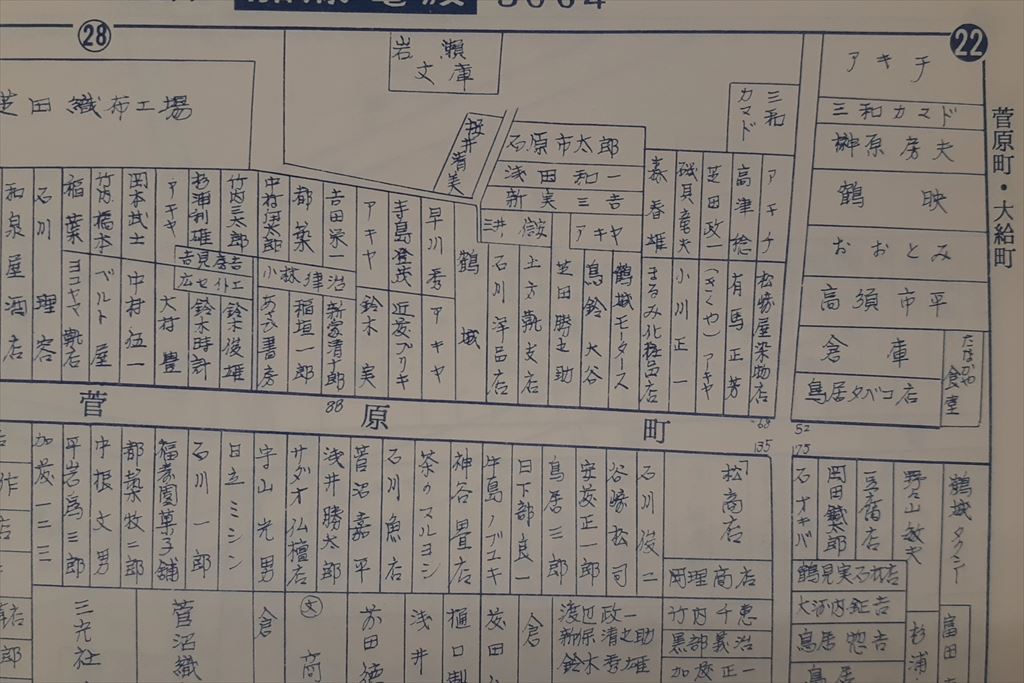 28
3004
22
菅原町・大給町
岩瀬
文庫
芝田織布工場
桜井清美
石原市太郎
浅田和一
新実三吉
三和
カマド
アキチ
三和カマド
榊原房夫
鶴映
おおとみ
高須市平
倉庫
鳥居タバコ店
たながや
食堂
和泉屋酒店
石川理容
稲葉
ヨコヤマ靴店
竹内
橋本
ベルト屋
岡本武士
中村伍一
アキヤ
大村豊
杉浦利雄
吉見房吉
広セイトエ
鈴木時計
竹内三太郎
鈴木俊雄
中村伊太郎
都築
小林律治
あさひ書房
稲垣一郎
吉田栄一
新實清十郎
アキヤ
鈴木実
寺島登茂
近藤ブリキ
早川秀
アキヤ
鶴城
石川洋品店
土方靴支店
芝田勝之助
アキヤ
鳥鈴大谷
鶴城モータース
泰春雄
まるみ化粧品店
磯貝竜夫
小川正一
芝田政一
(きくや)アキヤ
高津稔
有馬正芳
アキチ
松崎屋染物店
菅原町
88
68
135
52
175
加藤一二三
平岩為三郎
中根文男
都築牧二郎
福寿園菓子舗
石川一郎
日立ミシン
宇山光男
サダオ仏檀店
浅井勝太郎
菅沼嘉平
石川魚店
茶のマルヨシ
神谷畳店
牛島ノブユキ
日下部良一
鳥居三郎
安藤正一郎
谷崎松司
石川俊二
松商店
岡理商店
石オキバ
岡田鐵太郎
豆腐店
野々山敏夫
鶴城タクシー
鶴見実石材店
大河内鉦吉
鳥居惣吉
鳥居
杉浦
富田
三光社
菅沼織
倉
文
商
前田徳
浅井
樋口製
藤田
倉
渡辺政一
新保清之助
鈴木秀雄
竹内千恵
黒部義治
加藤正一